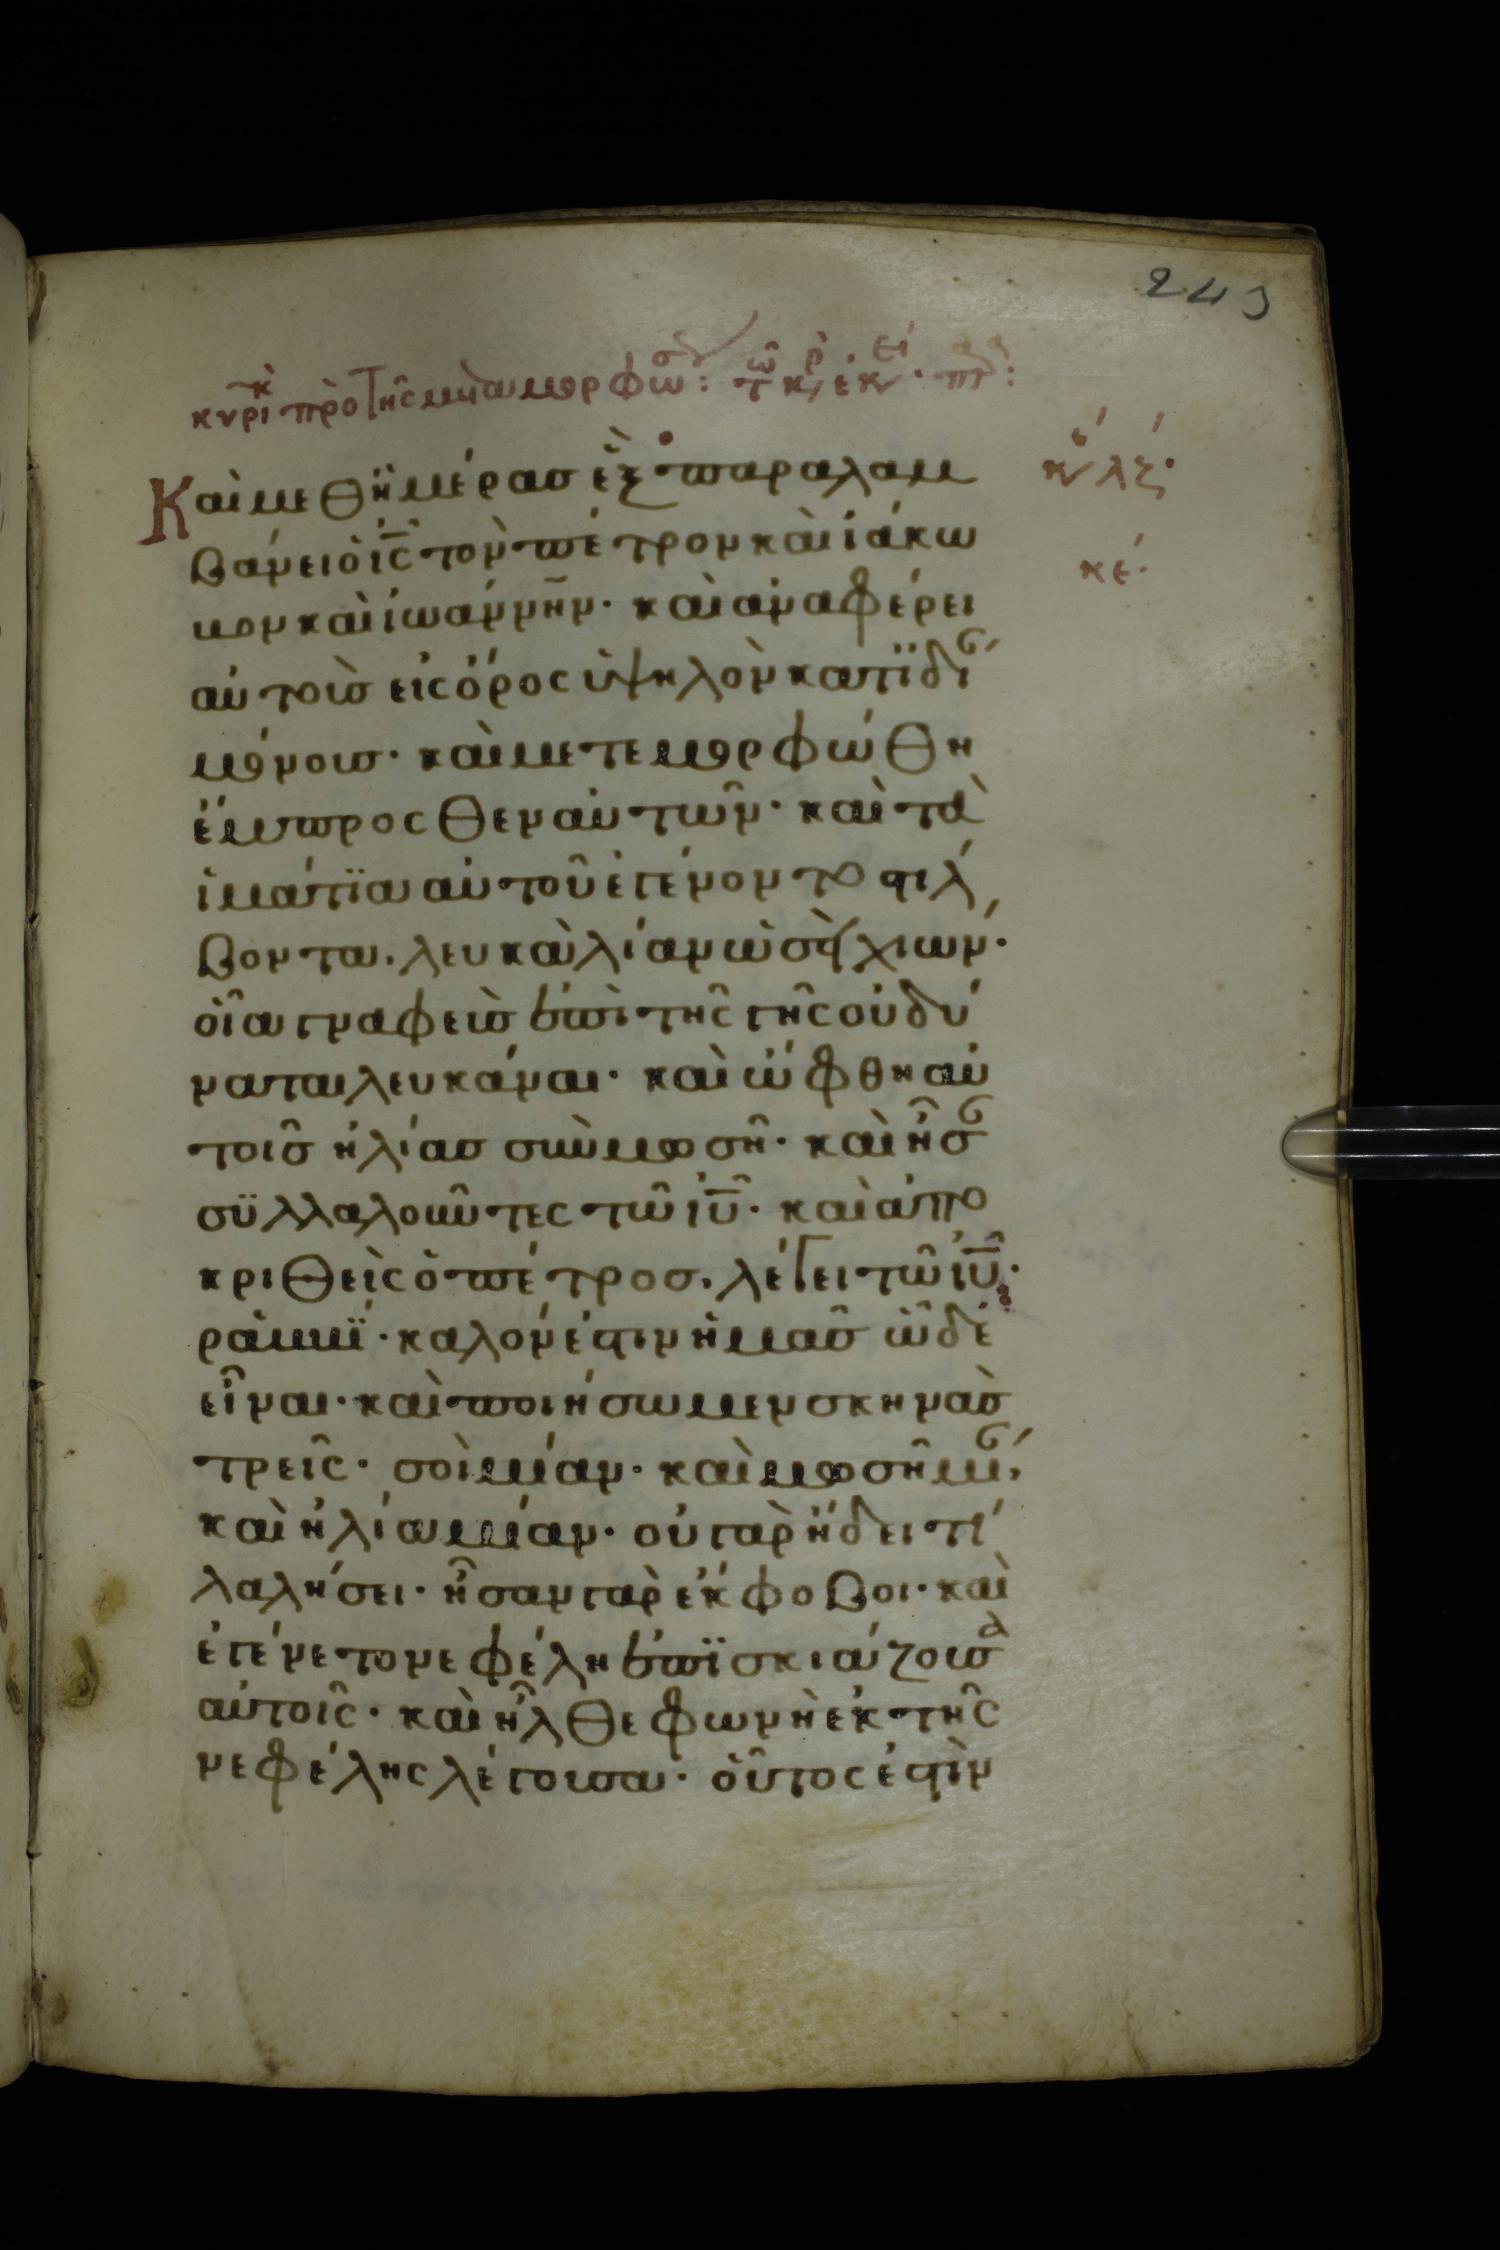 243
Καὶ μεθ ἡμέρας ἓξ παραλαμ
βάνει ὁ ις τὸν πέτρον καὶ ἰάκω
βον καὶ ἰωάννην· καὶ ἀναφέρει
αὐτοὺς εἰς ὄρος ὑψηλὸν κατϊδί
μόνους· καὶ μετεμορφώθη
ἔμπροσθεν αὐτῶν· καὶ τὰ
ἱμάτϊα αὐτοῦ ἐγένοντο στίλ
βοντα, λευκὰ λίαν ὡς χιών·
οἷα γναφεὺς ἐπὶ τῆς γῆς οὐ δύ
ναται λευκάναι· καὶ ὤφθη αὐ
τοῖς ἠλίας σὺν μωσῆ· καὶ ἦσ
συλλαλοῦντες τῶ ιυ· καὶ ἀπο
κριθεὶς ὁ πέτρος, λέγει τῶ ιυ·
ραββΐ· καλόν ἐστιν ἡμᾶς ὧδε
εἶναι· καὶ ποιήσωμεν σκηνὰς
τρεῖς· σοὶ μίαν· καὶ μωσῆ μί,
καὶ ἠλία μίαν· οὐ γὰρ ἤδει τί
λαλήσει· ἦσαν γὰρ ἔκφοβοι· καὶ
ἐγένετο νεφέλη ἐπϊσκιάζουσα
αὐτοῖς· καὶ ἦλθε φωνὴ ἐκ τῆς
νεφέλης λέγουσα· οὗτός ἐστὶν